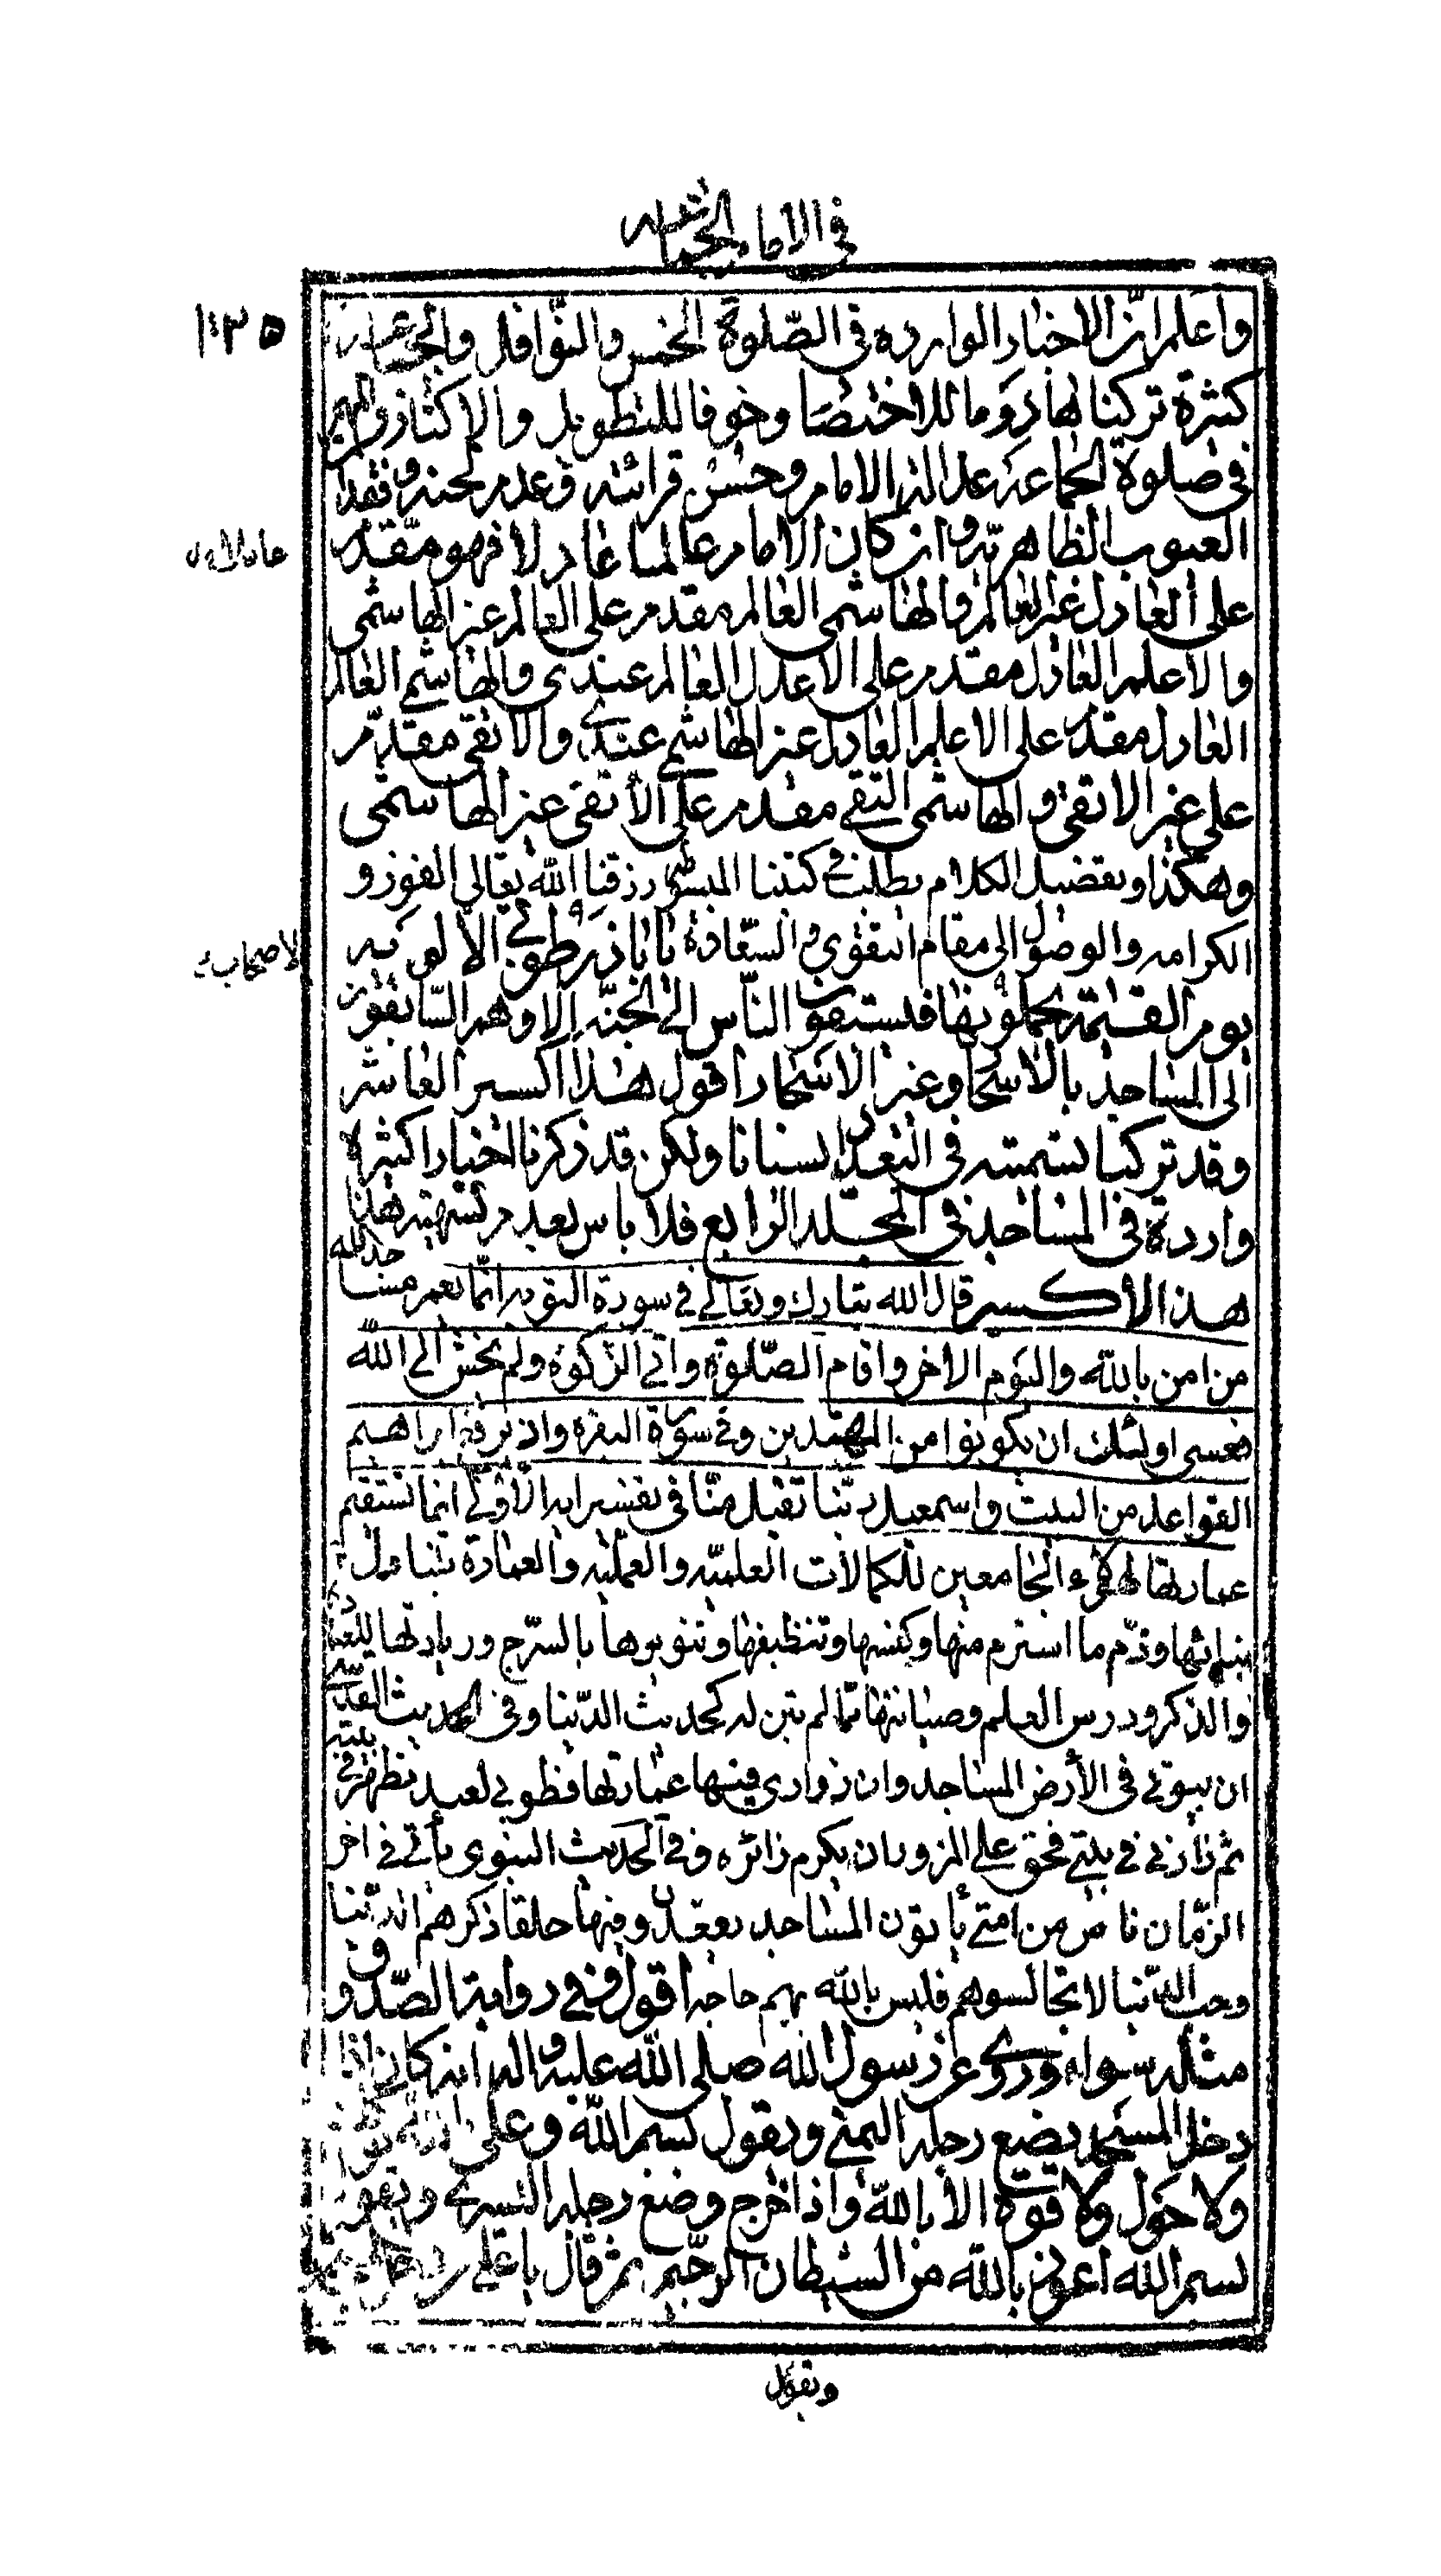 في الامام الجماعه
١٣٥
واعلم ان الاخبار الوارده في الصّلوة الخمس والنّوافل والجماعة
كثرة تركناها روما للاختصا وخوفا للتطويل والاكثار
في صلوة الجماعة عدالة الامام وحسن قرائته وعدم لحنه وفقد
العيوب الظاهريّه وان كان الامام عالما عادلا فهو مقدّم
على العادل غير العالم والهاشمي العالم مقدم على العالم غير الهاشمي
والاعلم العادل مقدم على الاعدل العالم عندي والهاشمي العالم
العادل مقدم على الاعلم العادل غير الهاشمي عندي والاتقى مقدّم
على غير الاتقى والهاشمي التقي مقدم على الاتقى غير الهاشمي
وهكذا وتفضيل الكلام يطلب في كتبنا المبسوطة رزقنا الله تعالى الفوز و
الكرامه والوصول الى مقام التقوى والسّعادة يا باذر طوبى الالويه
لاصحاب
يوم القيمة يحملونها فيستبقون النّاس الى الجنّه الا وهم السّابقون
الى المساجد بالاسحار وغير الاسحار اقول هذا اكسير العاشر
وقد تركنا تسميته في التعداد نسيانا ولكن قد ذكرنا اخبارا كثيرة
واردة في المساجد في المجلد الرابع فلا باس بعدم تسميته هذا
هذا الأكسير قال الله تبارك وتعالى في سورة التوبه انّما يعمر مساجد الله
من امن بالله واليوم الاخر واقام الصّلوة واتى الزّكوة ولم يخش الى الله
فعسى اولئك ان يكونوا من المهتدين وفي سورة البقرة واذ يرفع ابراهيم
القواعد من البيت واسمعيل ربّنا تقبل منّا في تفسير ايه الاولى انما تستقيم
عمارتها لهؤلاء الجامعين للكمالات العلميّه والعمليّه والعمارة يتناول
بنيانها ورمّ ما استرم منها وكنسها وتنظيفها وتنويرها بالسّرج وزيادتها للعبادة
والذكر ودرس العلم وصيانتها ممّا لم تبن له كحديث الدّنيا وفي الحديث القدسي
ان بيوتي في الأرض المساجد وان زواري فيها عمّارتها فطوبى لعبد تطهر في بيته
ثم زارني في بيتي فحق على المزور ان يكرم زائره وفي الحديث النبوى يأتي في اخر
الزّمان ناس من امتي يأتون المساجد يقعدون فيها حلقا ذكرهم الدّنيا
وحب الدّنيا لا تجالسوهم فليس بالله بهم حاجه اقول في رواية الصّدوق
مثله سواء وروي عن رسول الله صلى الله عليه واله انه كان اذا
دخل المسجد يضع رجله اليمنى ويقول بسم الله وعلى الله توكّلت
ولا حول ولا قوة الا بالله واذا خرج وضع رجله اليسرى ويقول
بسم الله اعوذ بالله من الشيطان الرجيم ثم قال يا علي من دخل
وتقول